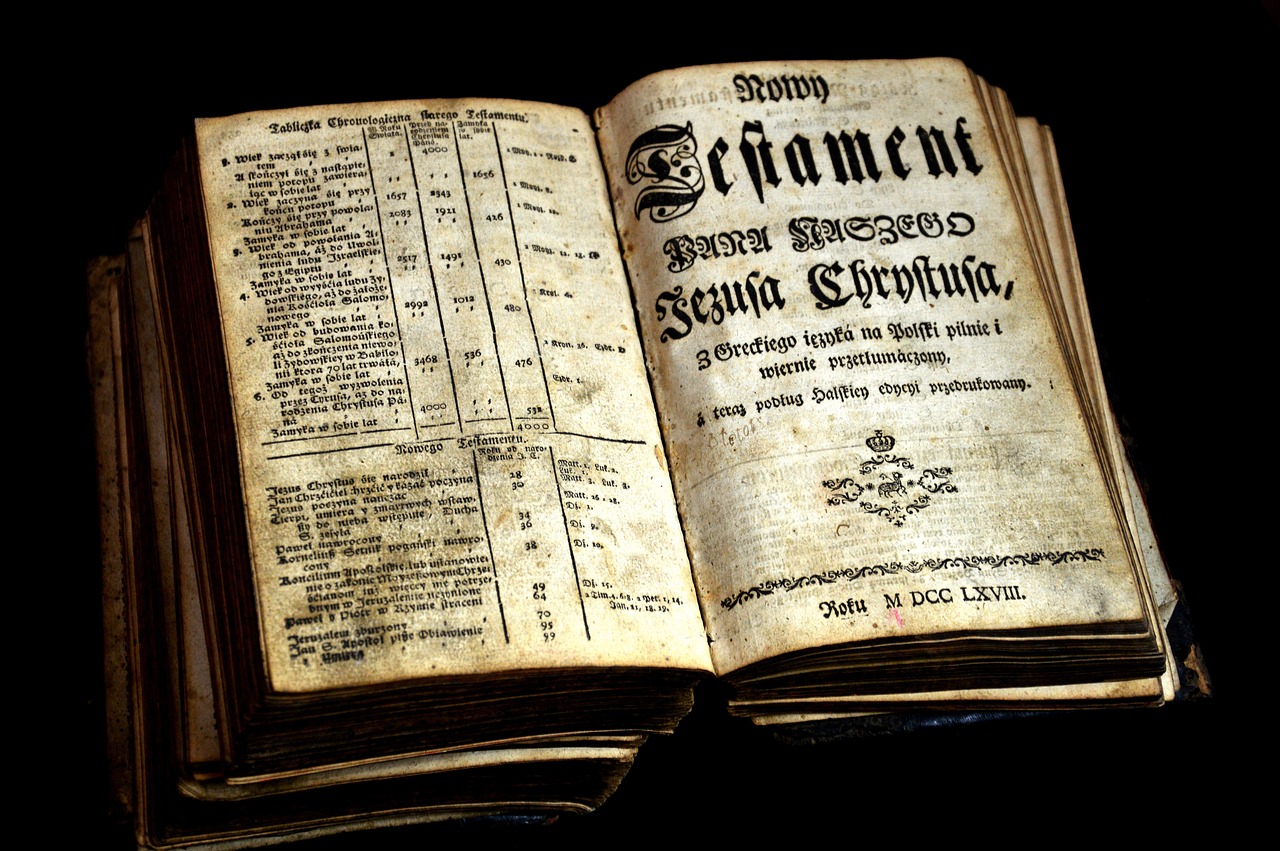 Tabliczka Chronologiczna starego Testamentu.
W Roku Swiata. Przed narodzeniem Chrystusa Pana. Zamyka w sobie lat.
1. Wiek zaczął się z świa-
tem 1 4000
A skończył się z nastąpie-
niem potopu zawiera-
iąc w sobie lat 1656
2. Wiek zaczyna się przy
końcu potopu 1657 2343
Kończy się przy powoła-
niu Abrahama 2083 1921
Zamyka w sobie lat 426
3. Wiek od powołania A-
brahama, aż do Uwol-
nienia ludu Izraelskie-
go z Egiptu 2517 1491
Zamyka w sobie lat 430
4. Wiek od wyyścia ludu Zy-
dowskiego, aż do założe-
nia Kościoła Salomo-
nowego 2992 1012
Zamyka w sobie lat 480
5. Wiek od budowania ko-
ścioła Salomońskiego
aż do zkończenia niewo-
li Zydowskiey w Babilo-
nii ktora 70 lat trwała, 3468 536
Zamyka w sobie lat 476
6. Od tegoż wyzwolenia
przez Cyrusa, aż do na-
rodzenia Chrystusa Pa-
na 4000
Zamyka w sobie lat 532
4000
Nowego Testamentu.
Roku od naro-
dzenia J. C.
Jezus Chrystus się narodził
Jan Chrzciciel chrzcić y kazać poczyna 28
Jezus poczyna nauczać 30
Cierpi, umiera y zmartwych wstaw,
szy do nieba wstępuie, Ducha
S. zsyła 34
Paweł nawrocony 36
Korneliusz Setnik pogański nawro-
cony 38
Koncilium Apostolskie, lub ustanowie-
nie o zakonie Moyżeszowym Chrze-
ścianom już więcey nie potrze-
bnym w Jeruzalemie uczynione 49
Paweł y Piotr w Rzymie straceni 64
Jeruzalem zburzony 70
Jan S. Apostoł pisze Obiawienie 95
y umiera 99
Nowy
Testament
PANA NASZEGO
Jezusa Chrystusa,
Z Greckiego ięzyká na Polski pilnie i
wiernie przetłumáczony,
á teraz podług Halskiey edycyi przedrukowany.
Roku M DCC LXVIII.